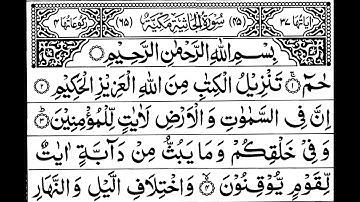 اٰیَاتُهَا ٣٧ (٤٥) سُوْرَةُ الْجَاثِیَةِ مَكِّیَّةٌ (٦٥) رُكُوْعَاتُهَا ٤
بِسْمِ اللّٰهِ الرَّحْمٰنِ الرَّحِیْمِ
حٰمٓ ۚ‏ ﴿١﴾ تَنْزِیْلُ الْكِتٰبِ مِنَ اللّٰهِ الْعَزِیْزِ الْحَكِیْمِ ﴿٢﴾
اِنَّ فِی السَّمٰوٰتِ وَ الْاَرْضِ لَاٰیٰتٍ لِّلْمُؤْمِنِیْنَ ؕ ﴿٣﴾
وَ فِیْ خَلْقِكُمْ وَ مَا یَبُثُّ مِنْ دَآبَّةٍ اٰیٰتٌ
لِّقَوْمٍ یُّوْقِنُوْنَ ۙ ﴿٤﴾ وَ اخْتِلَافِ الَّیْلِ وَ النَّهَارِ